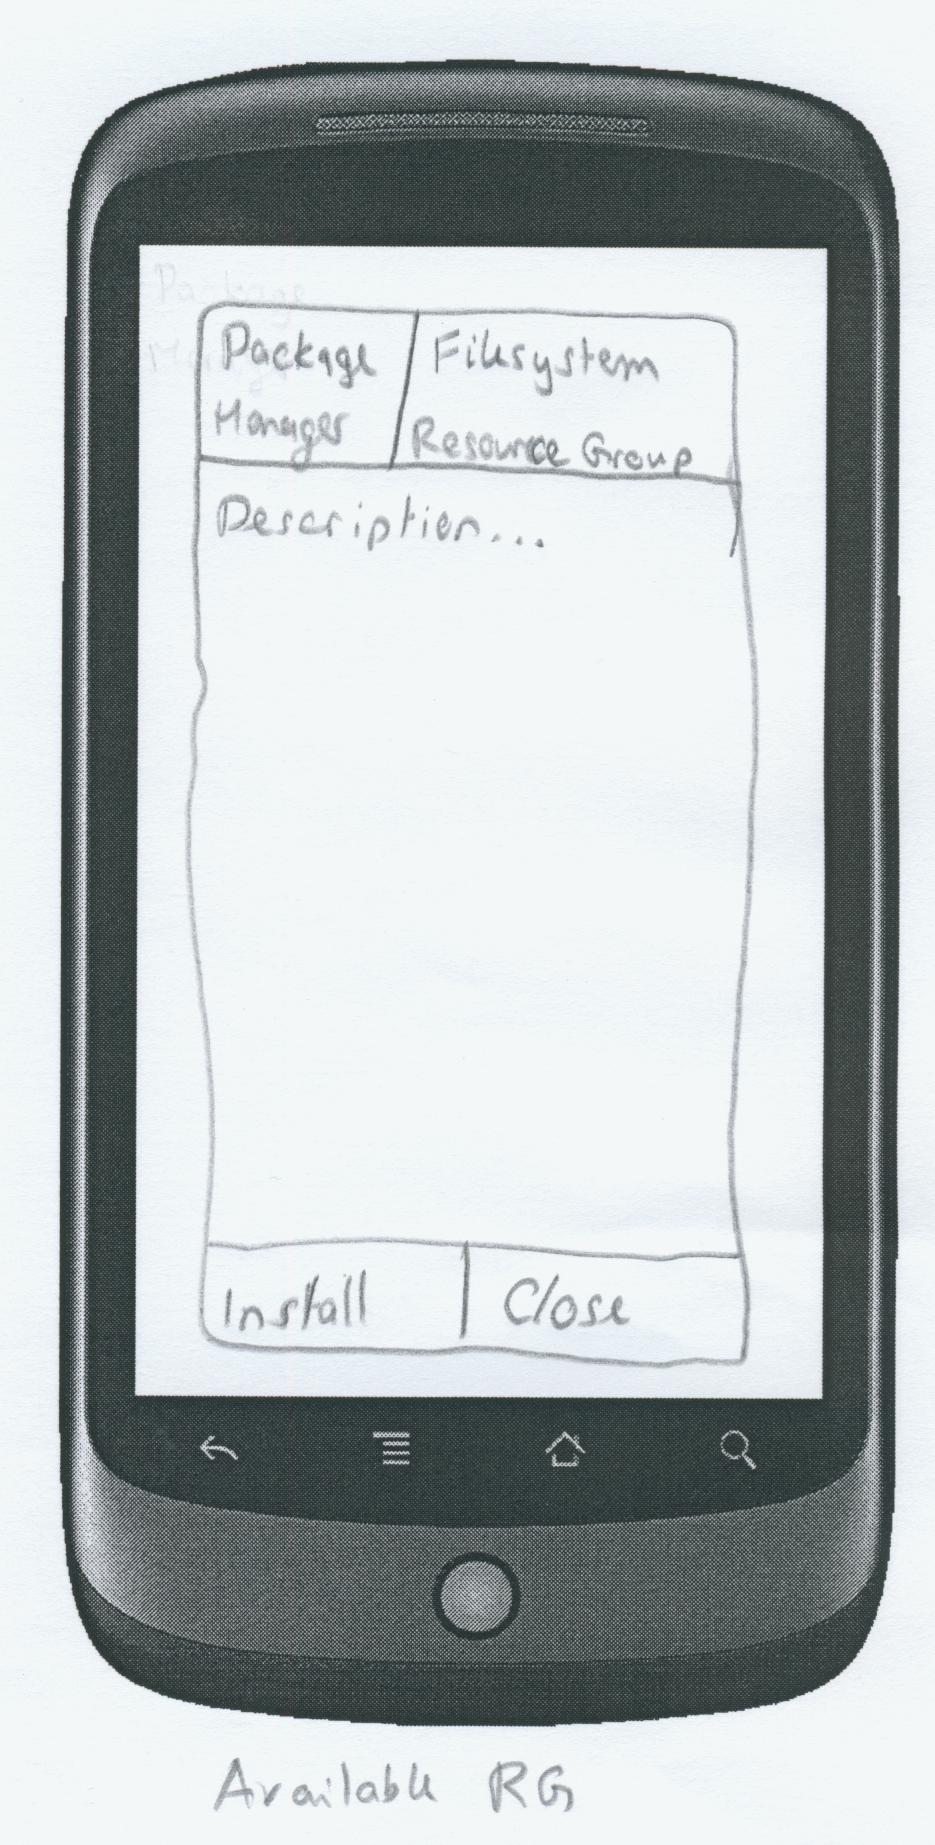 Package
Manager
Filesystem
Resource Group
Description...
Install
Close
Available RG